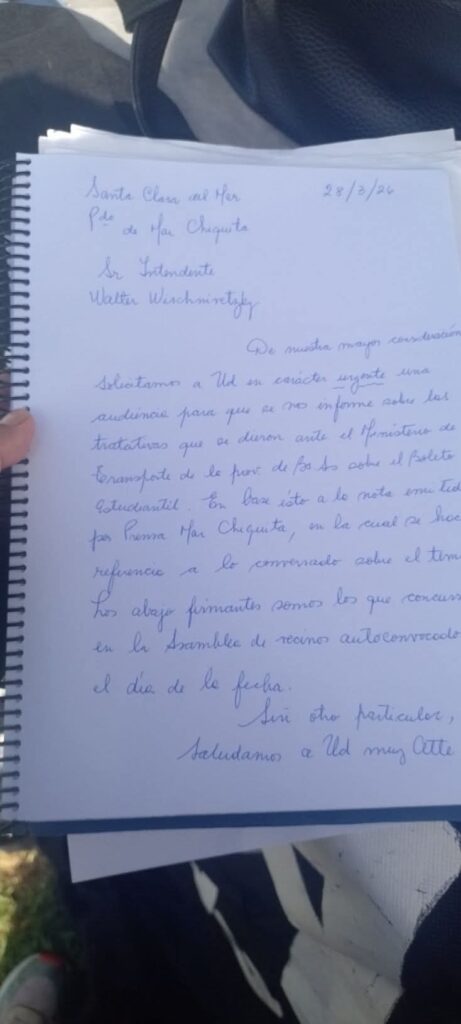 Santa Clara del Mar 28/3/26
Pdo de Mar Chiquita
Sr Intendente
Walter Wischnivetzky
De nuestra mayor consideración
Solicitamos a Ud en carácter urgente una
audiencia para que se nos informe sobre las
tratativas que se dieron ante el Ministerio de
Transporte de la prov. de Bs As sobre el Boleto
Estudiantil. En base ésto a la nota emitid
por Prensa Mar Chiquita, en la cual se hac
referencia a lo conversado sobre el tem
Los abajo firmantes somos los que concurr
en la Asamblea de vecinos autoconvocado
el día de la fecha.
Sin otro particular,
Saludamos a Ud muy Atte